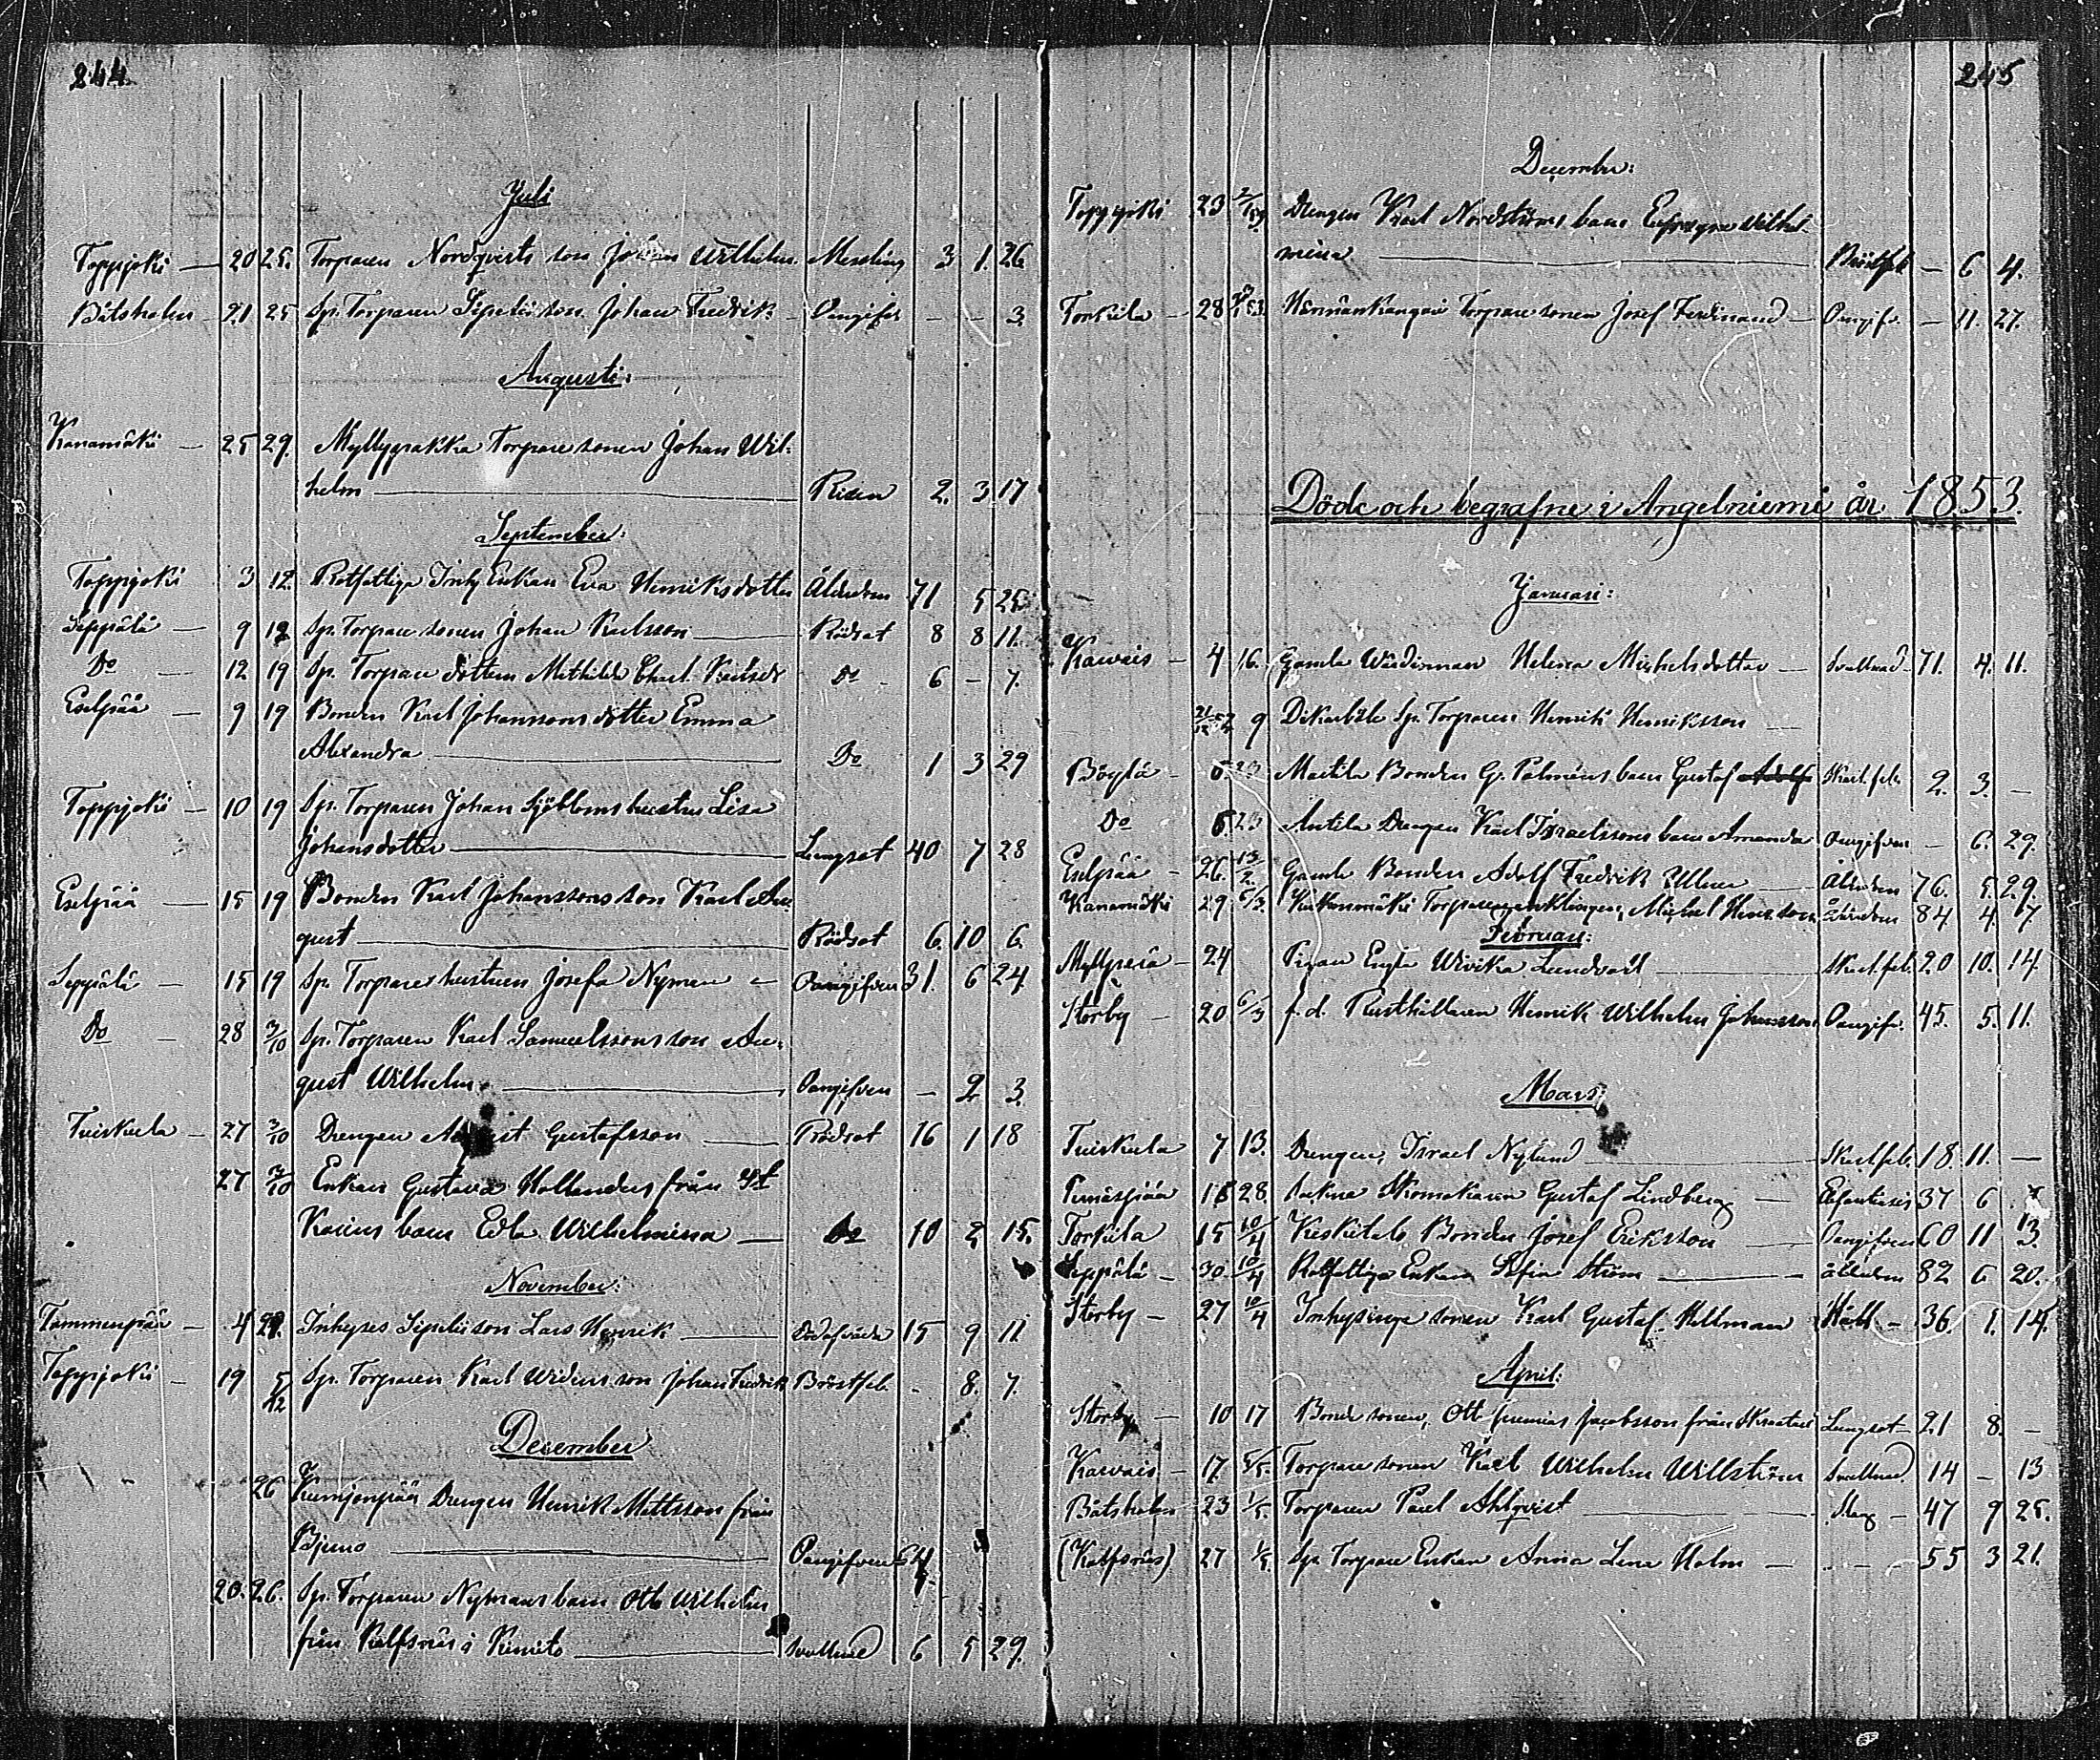 244.
Juli
Toppjoki — 20 25. Torparen Nordqvists son Johan Wilhelm Messling 3 1. 26
Båtsholm 21 25 Sp. Torparen Sipelii son Johan Fredrik — Oangifvet — — 3.
Augusti:
Kanamäki — 25 29. Myllypakka Torpare sonen Johan Wil-
helm — Risen 2. 3 17
September:
Toppjoki 3 12. Rotfattiga Inhy Enkan Eva Henriksdotter Ålderdom 71 5 25
Seppälä — 9 12 Sp. Torpare sonen Johan Karlsson — Rödsot 8 8 11.
Do — 12 19 Sp. Torpare dottern Mathilda Charl. Karlsdr Do 6 — 7.
Eselpää — 9 19 Bonden Karl Johanssons dotter Emma
Alexandra — Do 1 3 29
Toppjoki — 10 19 Sp. Torparen Johan Sjöbloms hustru Lisa
Johansdotter — Lungsot 40 7 28
Eselpää — 15 19 Bonden Karl Johanssons son Karl Au-
gust — Rödsot 6. 10 6.
Seppälä — 15 19 Sp. Torpare hustrun Josefa Nyman — Oangifven 31. 6 24.
Do — 28 3/10 Sp. Torparen Karl Samuelssons son Au-
gust Wilhelm. — Oangifven — 2 3.
Tuiskula — 27 3/10 Drengen August Gustafsson — Rödsot 16 1 18
27 3/10 Enkan Gustava Hollanders från St
Karins barn Edla Wilhelmina — Do 10 2 15.
November:
Tammenpää — 4 Inhyses Sipelii son Lars Henrik — 15 9 11
Toppjoki — 19 5/12 Sp. Torparen Karl Widens son Johan Fredrik Bröstfeb. - 8. 7.
December
26 Drengen Henrik Mattsson från
Bjerno — Oangifven
20. 26. Sp. Torparen Nymans barn Otto Wilhelm
från Kalfsnäs i Kimito — Svullnad 6 5 29.
245
December:
Toppjoki 23 2/1 53 Drengen Karl Nordströms barn Eufrosyne Wilhel-
mina — Bröstfeb — 6 4.
Torkila — 28 Torpare sonen Josef Ferdinand — Oangifv. — 11. 27.
Döde och begrafne i Angelniemi år 1853.
Januari:
Karvais — 4 16. Gamla Wärdinnan Helena Michelsdotter — Svullnad 71. 4. 11.
9 Sp. Torparen Henrik Henriksson —
Böylä — 6 23 Mattila Bonden G. Palméns barn Gustaf Adolf Skarl. feb. 2. 3. —
Do 6 23 Antila Drengen Karl Israelssons barn Amanda Oangifven — 6. 29.
Eselpää — 26. 13/2. Gamle Bonden Adolf Fredrik Ullner — Ålderdom 76. 5. 29.
Kanamäki 29 6/3. Torparen Michel Ålderdom 84 4. 17
Februari:
Myllyperä — 24 Pigan Engla Wivika Lundvall — Skarl. feb. 20 10. 14.
Storby — 20 6/3 f. d. Rusthållaren Henrik Wilhelm Johansson Oangifv. 45. 5. 11.
Mars:
Tuiskula 7 13. Drengen, Israel Nylund — Skarl. feb. 18. 11. —
Pernäspää 16 28 Sockne Skomakaren Gustaf Lindberg — Elefantiasis 37 6
Torkila 15 10/4 Keskitalo Bonden Josef Eriksson — Oangifven 60 11 3.
Seppälä — 30 10/4 Rotfattiga Enkan Sofia Ström — ålderdom 82 6 20.
Storby — 27 10/4 Inhysinge sonen Karl Gustaf Hellman Håll — 36. 1. 14.
April:
Storby — 10 17 Bonde sonen, Otto Jeremias Jacobsson från Lungsot — 21 8. —
Karvais — 17 5/5. Torpare sonen Karl Wilhelm Willström Svullnad 14 — 13
Båtsholm 23 1/5. Torparen Karl Ahlqvist — Slag — 47 9 25.
(Kalfsnäs) 27 1/5. Sp. Torpare Enkan Anna Lena Holm — 55 3 21.